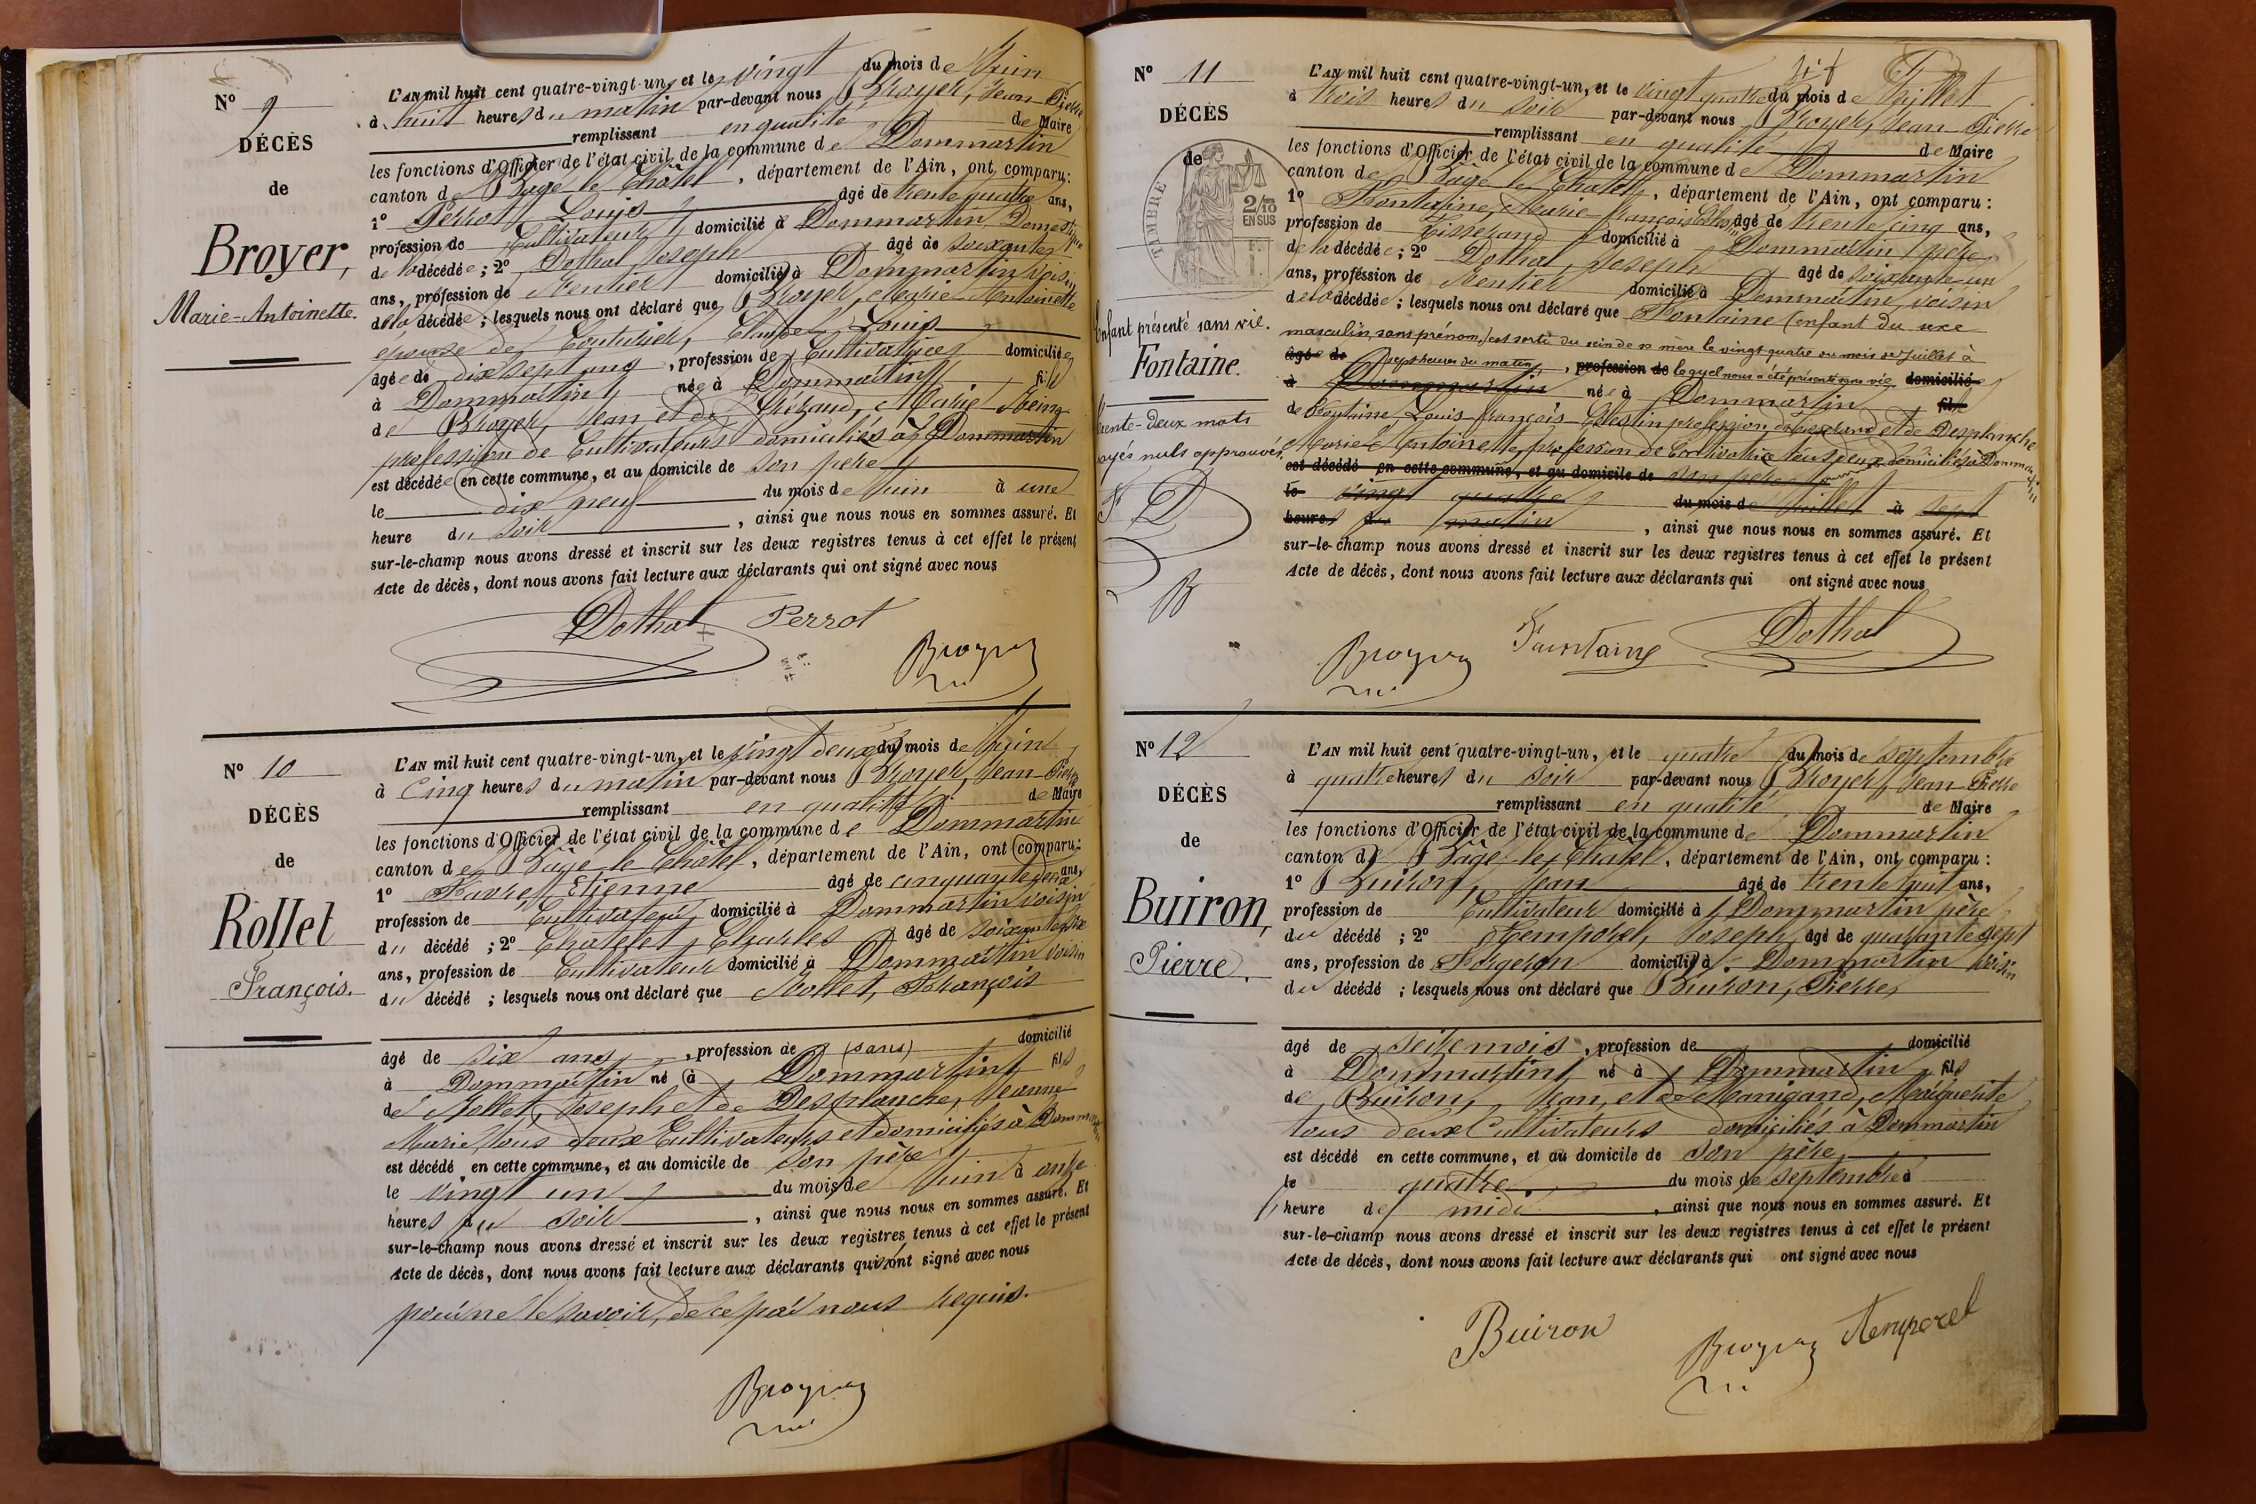 N° 9
DÉCÈS
de
Broyer,
Marie-Antoinette.
L'AN mil huit cent quatre-vingt-un, et le vingt du mois de Juin
à huit heures du matin par-devant nous Broyer, Jean Pierre
remplissant en qualité de Maire
les fonctions d'Officier de l'état civil de la commune de Dommartin
canton de Bâgé le Châtel, département de l'Ain, ont comparu:
1° Perrot Louis âgé de trente quatre ans,
profession de Cultivateur domicilié à Dommartin, Domestique
de la décédée; 2° Dothal Joseph âgé de soixante
ans, profession de Rentier domicilié à Dommartin voisin
de la décédée; lesquels nous ont déclaré que Broyer, Marie Antoinette
épouse de Couturier, Claude Louis
âgée de dix sept ans, profession de Cultivatrice domiciliée
à Dommartin née à Dommartin fille
de Broyer, Jean et de Marie
profession de Cultivateurs domiciliés à Dommartin
est décédée en cette commune, et au domicile de son père
le dix neuf du mois de Juin à une
heure du soir, ainsi que nous nous en sommes assuré. Et
sur-le-champ nous avons dressé et inscrit sur les deux registres tenus à cet effet le présent
Acte de décès, dont nous avons fait lecture aux déclarants qui ont signé avec nous
Dothal Perrot
Broyer
N° 10
DÉCÈS
de
Rollet
François.
L'AN mil huit cent quatre-vingt-un, et le vingt deux du mois de Juin
à Cinq heures du matin par-devant nous Broyer, Jean Pierre
remplissant en qualité de Maire
les fonctions d'Officier de l'état civil de la commune de Dommartin
canton de Bâgé le Châtel, département de l'Ain, ont comparu:
1° Favre, Etienne âgé de cinquante deux ans,
profession de Cultivateur domicilié à Dommartin voisin
du décédé; 2° Chatelet, Charles âgé de
ans, profession de Cultivateur domicilié à Dommartin voisin
du décédé; lesquels nous ont déclaré que Rollet, François
âgé de six ans, profession de (sans) domicilié
à Dommartin né à Dommartin fils
de Rollet, Joseph et de Desplanche, Jeanne
Marie tous deux Cultivateurs et domiciliés à Dommartin
est décédé en cette commune, et au domicile de son père
le vingt un du mois de Juin à onze
heures du soir, ainsi que nous nous en sommes assuré. Et
sur-le-champ nous avons dressé et inscrit sur les deux registres tenus à cet effet le présent
Acte de décès, dont nous avons fait lecture aux déclarants qui ont signé avec nous
pour ne le savoir, de ce par nous requis.
Broyer
N° 11
DÉCÈS
de
TIMBRE
2/10 EN SUS
Enfant présenté sans vie.
Fontaine.
Trente-deux mots
rayés nuls approuvés.
F D
B
L'AN mil huit cent quatre-vingt-un, et le vingt quatre du mois de Juillet
à trois heures du soir par-devant nous Broyer, Jean Pierre
remplissant en qualité de Maire
les fonctions d'Officier de l'état civil de la commune de Dommartin
canton de Bâgé le Châtel, département de l'Ain, ont comparu:
1° Fontaine, Louis-François Célestin âgé de trente cinq ans,
profession de Tisserand domicilié à Dommartin père
de la décédée; 2° Dothal, Joseph âgé de soixante-un
ans, profession de Rentier domicilié à Dommartin voisin
de la décédée; lesquels nous ont déclaré que Fontaine (enfant du sexe
masculin, sans prénom,) est sorti du sein de sa mère le vingt quatre du mois de Juillet à
âgé de sept heures du matin, profession de lequel nous a été présenté sans vie domicilié
à Dommartin née à Dommartin fils
de Fontaine Louis-François Célestin profession de tisserand et de Desplanche
Marie Antoinette profession de Cultivatrice tous deux domiciliés à Dommartin
est décédé en cette commune, et au domicile de son père
le vingt quatre du mois de Juillet à sept
heures du matin, ainsi que nous nous en sommes assuré. Et
sur-le-champ nous avons dressé et inscrit sur les deux registres tenus à cet effet le présent
Acte de décès, dont nous avons fait lecture aux déclarants qui ont signé avec nous
Broyer Fountaine Dothal
N° 12
DÉCÈS
de
Buiron,
Pierre.
L'AN mil huit cent quatre-vingt-un, et le quatre du mois de septembre
à quatre heures du soir par-devant nous Broyer, Jean Pierre
remplissant en qualité de Maire
les fonctions d'Officier de l'état civil de la commune de Dommartin
canton de Bâgé le Châtel, département de l'Ain, ont comparu:
1° Buiron, Jean âgé de trente huit ans,
profession de Cultivateur domicilié à Dommartin père
du décédé; 2° Temporel, Joseph âgé de quarante sept
ans, profession de Forgeron domicilié à Dommartin voisin
du décédé; lesquels nous ont déclaré que Buiron, Pierre,
âgé de seize mois, profession de domicilié
à Dommartin né à Dommartin fils
de Buiron, Jean, et de Manigand, Marguerite
tous deux Cultivateurs domiciliés à Dommartin
est décédé en cette commune, et au domicile de son père
le quatre du mois de septembre à
heure de midi, ainsi que nous nous en sommes assuré. Et
sur-le-champ nous avons dressé et inscrit sur les deux registres tenus à cet effet le présent
Acte de décès, dont nous avons fait lecture aux déclarants qui ont signé avec nous
Buiron Broyer Temporel